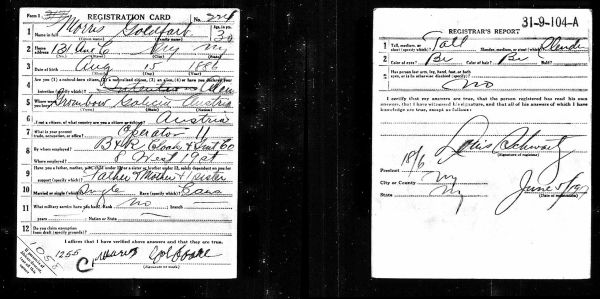 Form 1 REGISTRATION CARD No. 224
1 Name in full Morris Goldfarb Age, in yrs. 30
(Given name) (Family name)
2 Home address 131 Ave C Ny Ny
3 Date of birth Aug 15 1886
(Month) (Day) (Year)
4 Are you (1) a natural-born citizen, (2) a naturalized citizen, (3) an alien, (4) or have you declared your intention (specify which)? Alien
5 Where were you born? Galicia Austria
6 If not a citizen, of what country are you a citizen or subject? Austria
7 What is your present trade, occupation, or office? Operator 11
8 By whom employed? B & K Cloak & Suit Co
Where employed? 8 West 19 st
9 Have you a father, mother, wife, child under 12, or a sister or brother under 12, solely dependent on you for support (specify which)? Father & Mother & sister
10 Married or single (which)? Single Race (specify which)? Cauc
11 What military service have you had? Rank No ; branch
years ; Nation or State
12 Do you claim exemption from draft (specify grounds)?
I affirm that I have verified above answers and that they are true.
1255
(Signature or mark)
1058
31-9-104-A
REGISTRAR'S REPORT
1 Tall, medium, or short (specify which)? Tall Slender, medium, or stout (which)? Slender
2 Color of eyes? Br Color of hair? Br Bald?
3 Has person lost arm, leg, hand, foot, or both eyes, or is he otherwise disabled (specify)? No
I certify that my answers are true, that the person registered has read his own answers, that I have witnessed his signature, and that all of his answers of which I have knowledge are true, except as follows:
Louis Schwartz
(Signature of registrar)
Precinct 18/6
City or County Ny
State Ny
June 5/17
(Date of registration)